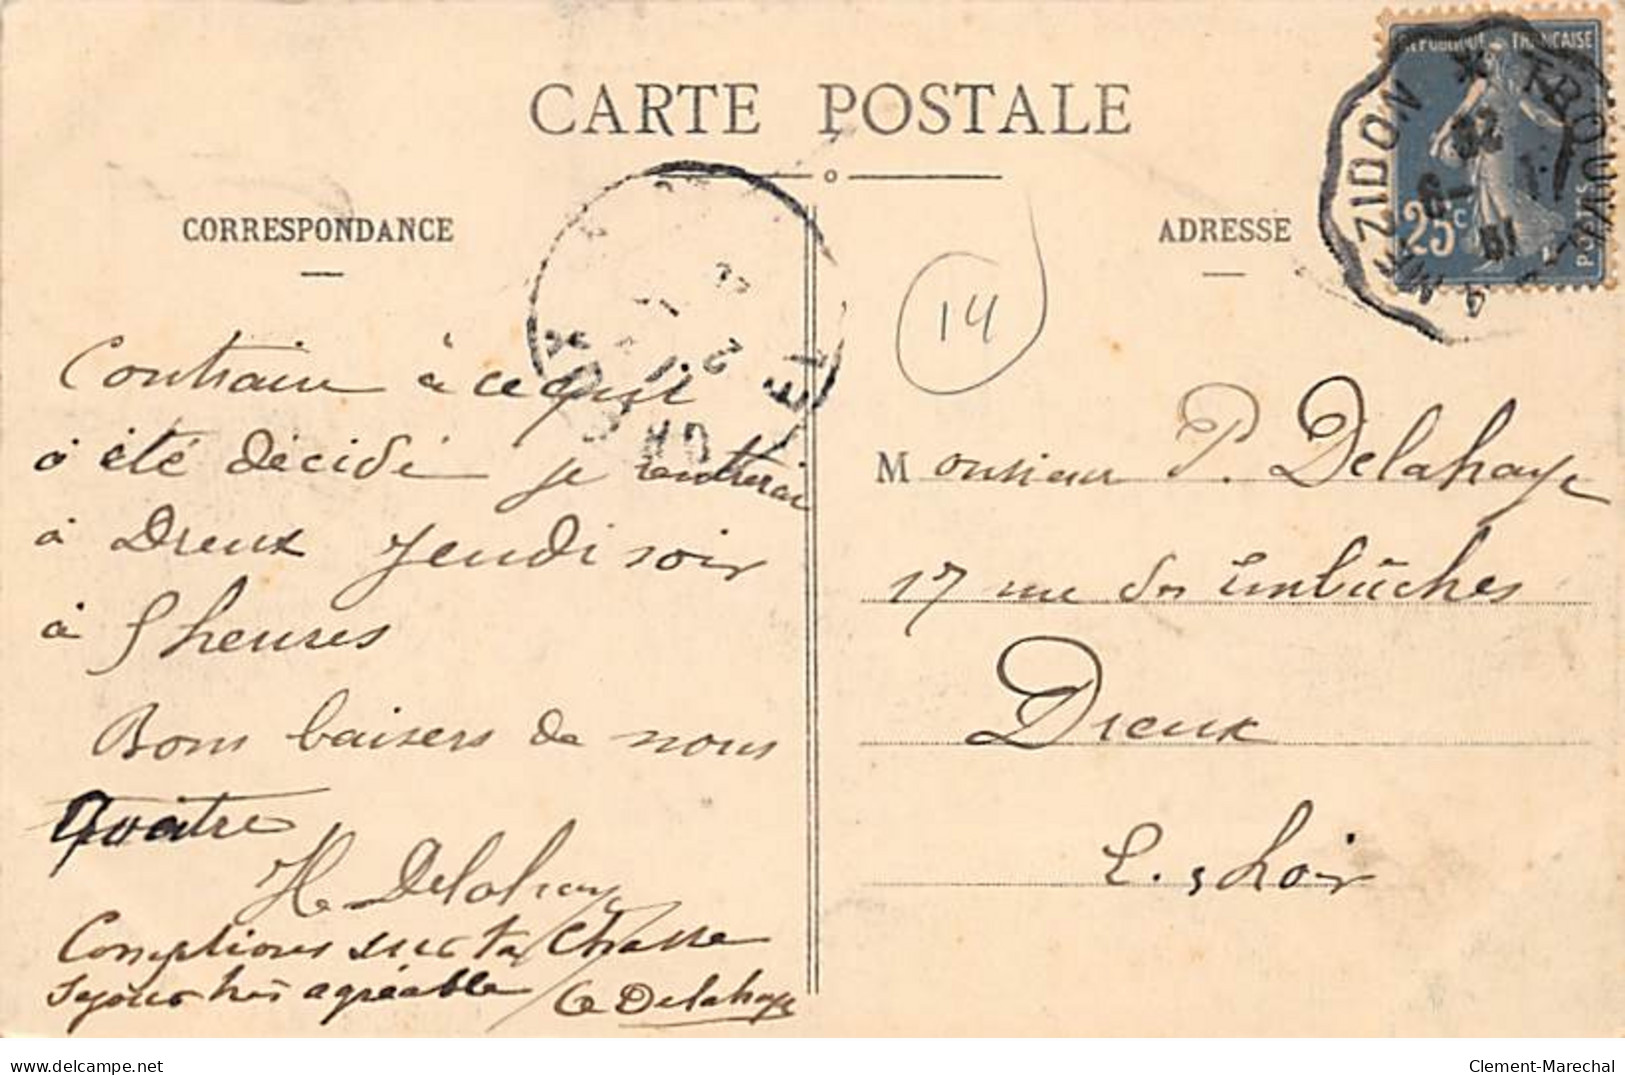 CARTE POSTALE
CORRESPONDANCE
ADRESSE
RÉPUBLIQUE FRANÇAISE
25c
POSTES
MEZIDON
TROUV
14
Contraire à ce qui
a été décidé je rentrerai
à Dreux Jeudi soir
à 5 heures
Bons baisers de nous
quatre
H. Delahaye
Comptions sur ta chasse
Séjour très agréable
G Delahaye
Monsieur P. Delahaye
17 rue des Embûches
Dreux
E. & Loir
www.delcampe.net
Clement-Marechal